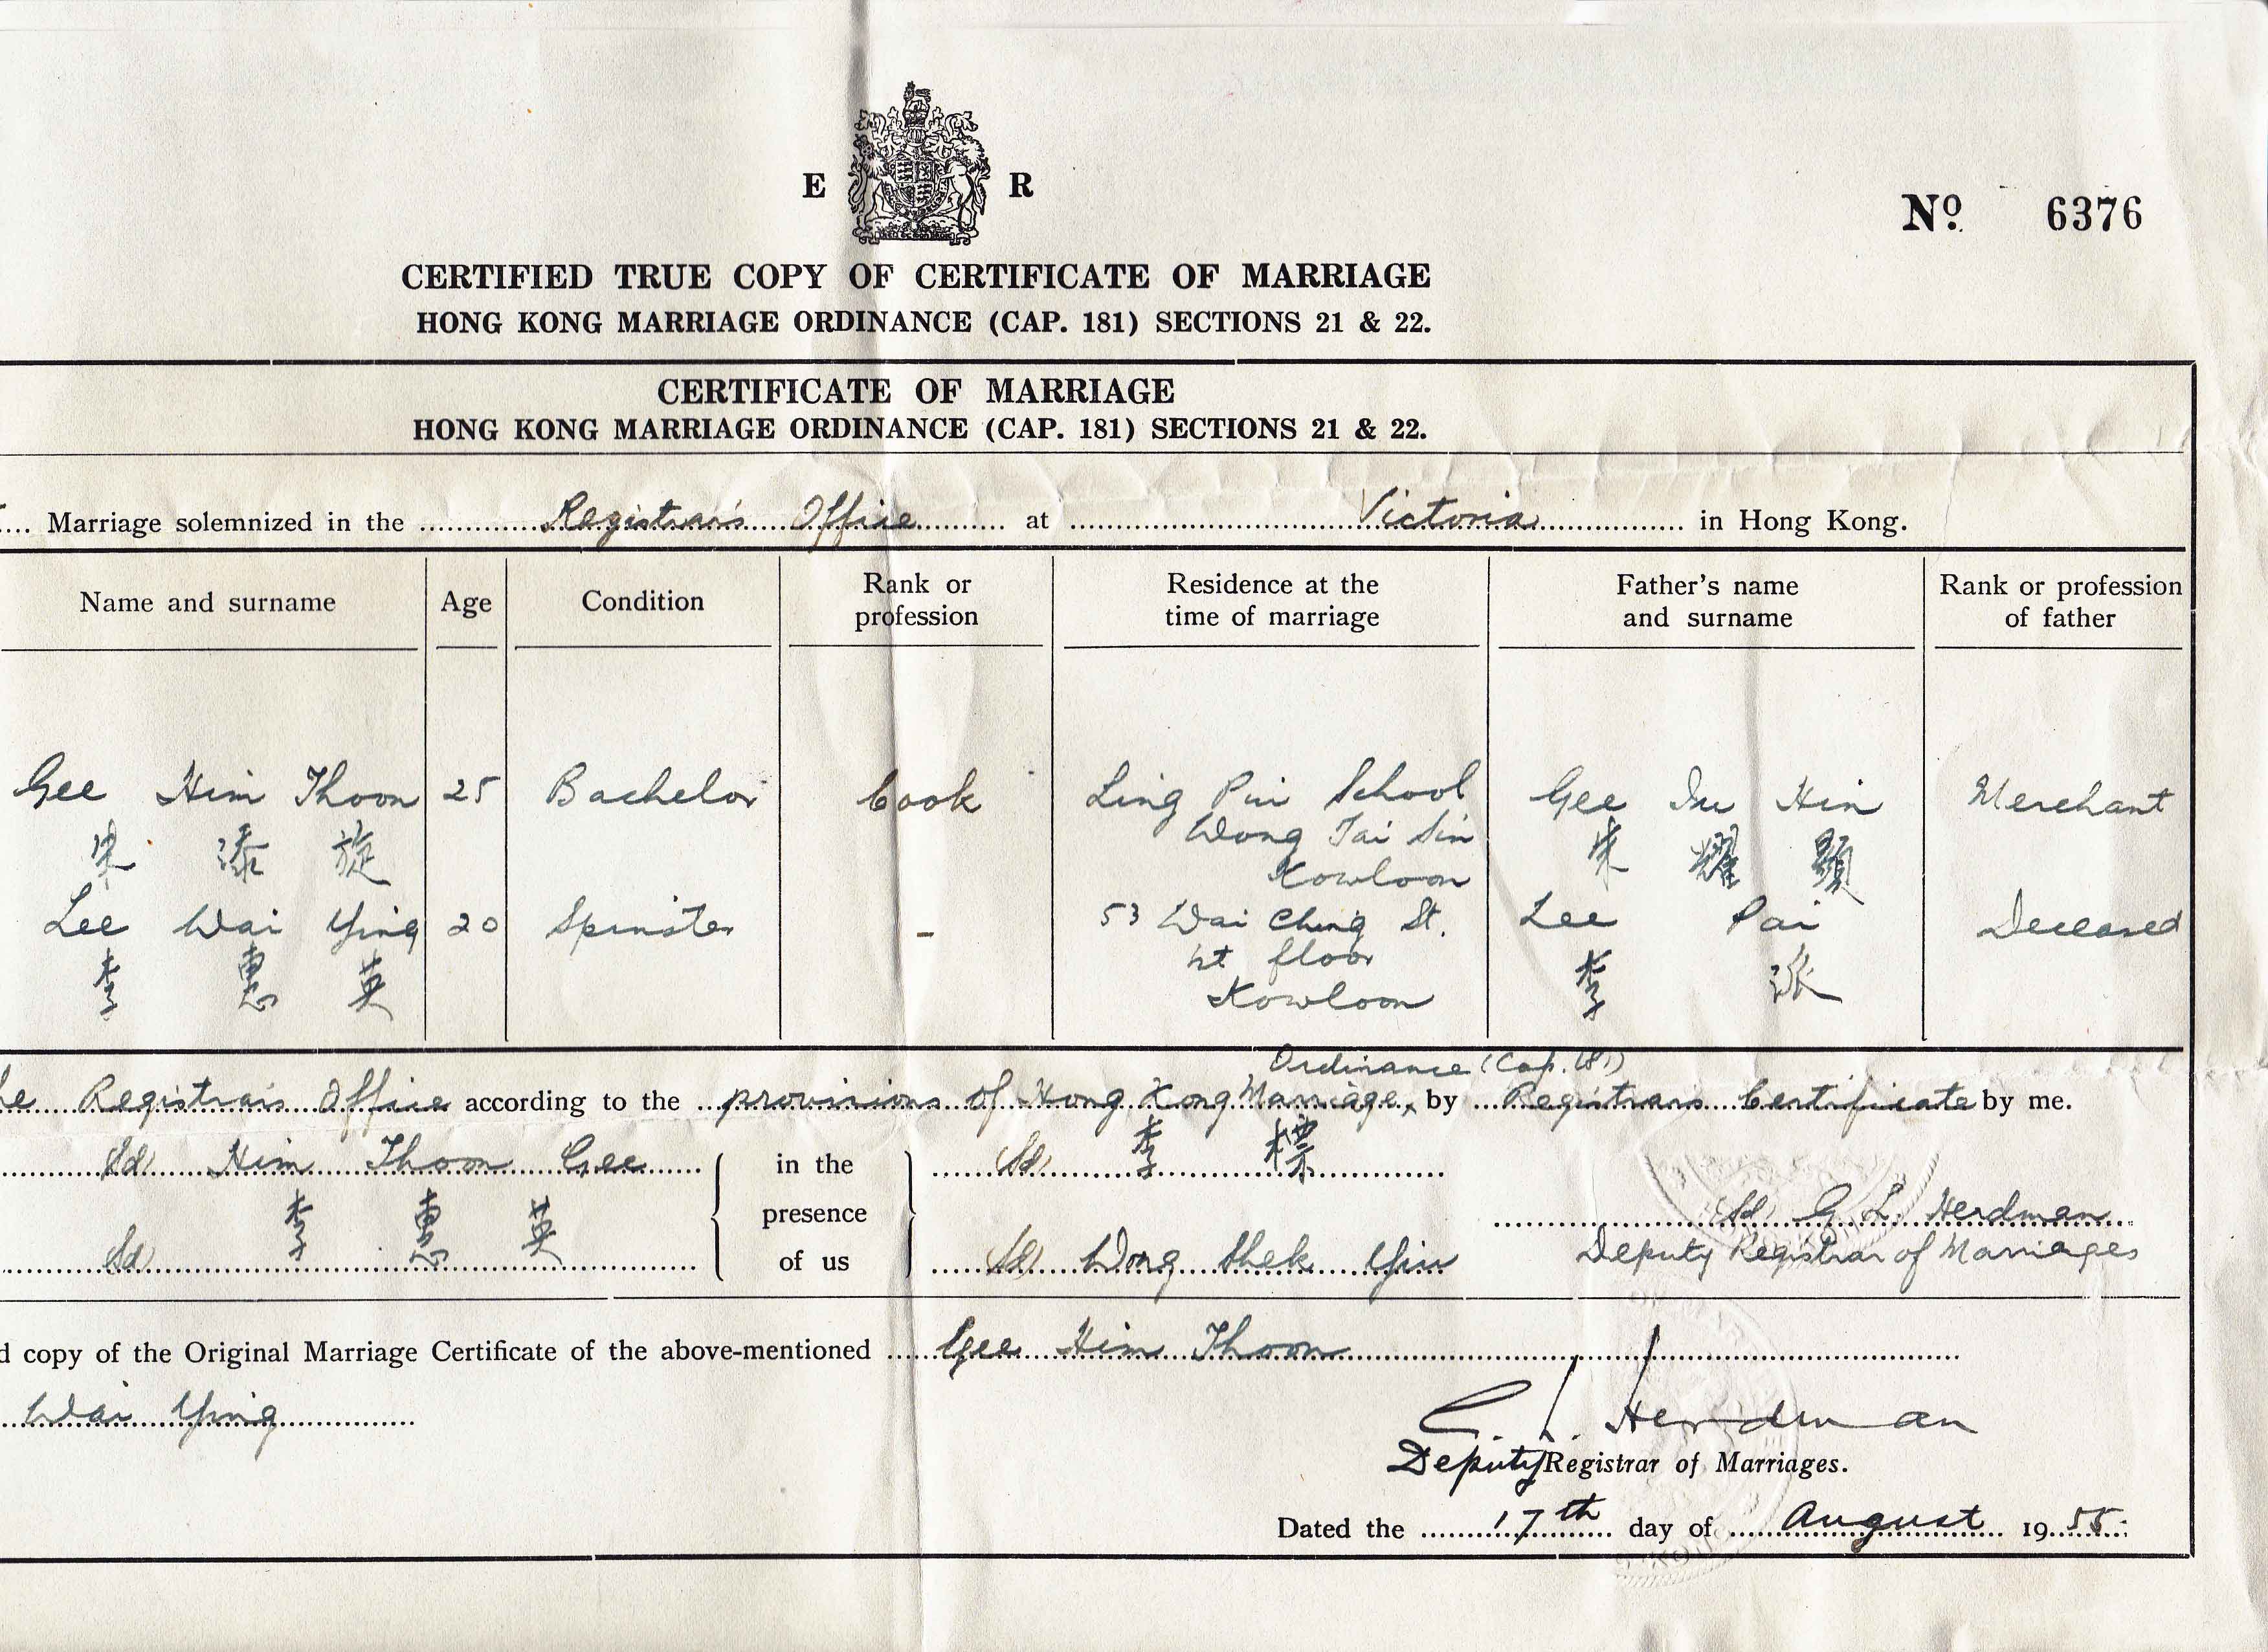 E R
Nº 6376
CERTIFIED TRUE COPY OF CERTIFICATE OF MARRIAGE
HONG KONG MARRIAGE ORDINANCE (CAP. 181) SECTIONS 21 & 22.
CERTIFICATE OF MARRIAGE
HONG KONG MARRIAGE ORDINANCE (CAP. 181) SECTIONS 21 & 22.
Marriage solemnized in the Registrar's Office at Victoria in Hong Kong.
Name and surname Age Condition Rank or profession Residence at the time of marriage Father's name and surname Rank or profession of father
Gee Him Thoon 25 Bachelor Cook Ling Pui School Gee Iu Hin Merchant
朱 添 旋 Wong Tai Sin 朱 耀 顯
Kowloon
Lee Wai Ying 20 Spinster - 53 Wai Ching St. Lee Pai Deceased
李 惠 英 1st floor 李 派
Kowloon
Ordinance (Cap. 181)
he Registrar's Office according to the provisions of Hong Kong Marriage, by Registrar's Certificate by me.
Sd) Him Thoon Gee in the Sd) 李 標
presence Sd) G. L. Herdman
Sd) 李 惠 英 of us Sd) Wong Shek Yiu Deputy Registrar of Marriages
d copy of the Original Marriage Certificate of the above-mentioned Gee Him Thoon
Wai Ying
G. L. Herdman
Deputy Registrar of Marriages.
Dated the 17th day of August 1955.